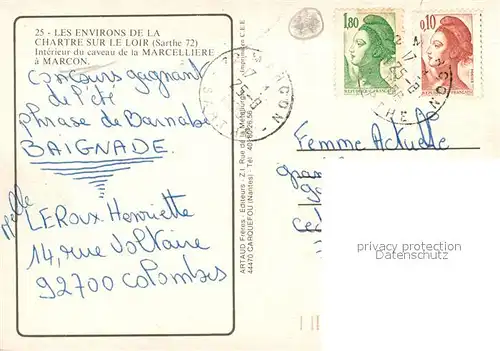 25 - LES ENVIRONS DE LA
CHARTRE SUR LE LOIR (Sarthe 72)
Intérieur du caveau de la MARCELLIERE
à MARÇON.
concours gagnant
de l'été
phrase de Barnabé
BAIGNADE.
Melle
LEROUX Henriette
14, rue Voltaire
92700 Colombes
ARTAUD Frères Editeurs - Z.I. Rue de la Métallurgie
44470 CARQUEFOU (Nantes) Tél.
Imprimé en C.E.E.
1,80
0,10
Femme Actuelle
privacy protection
Datenschutz